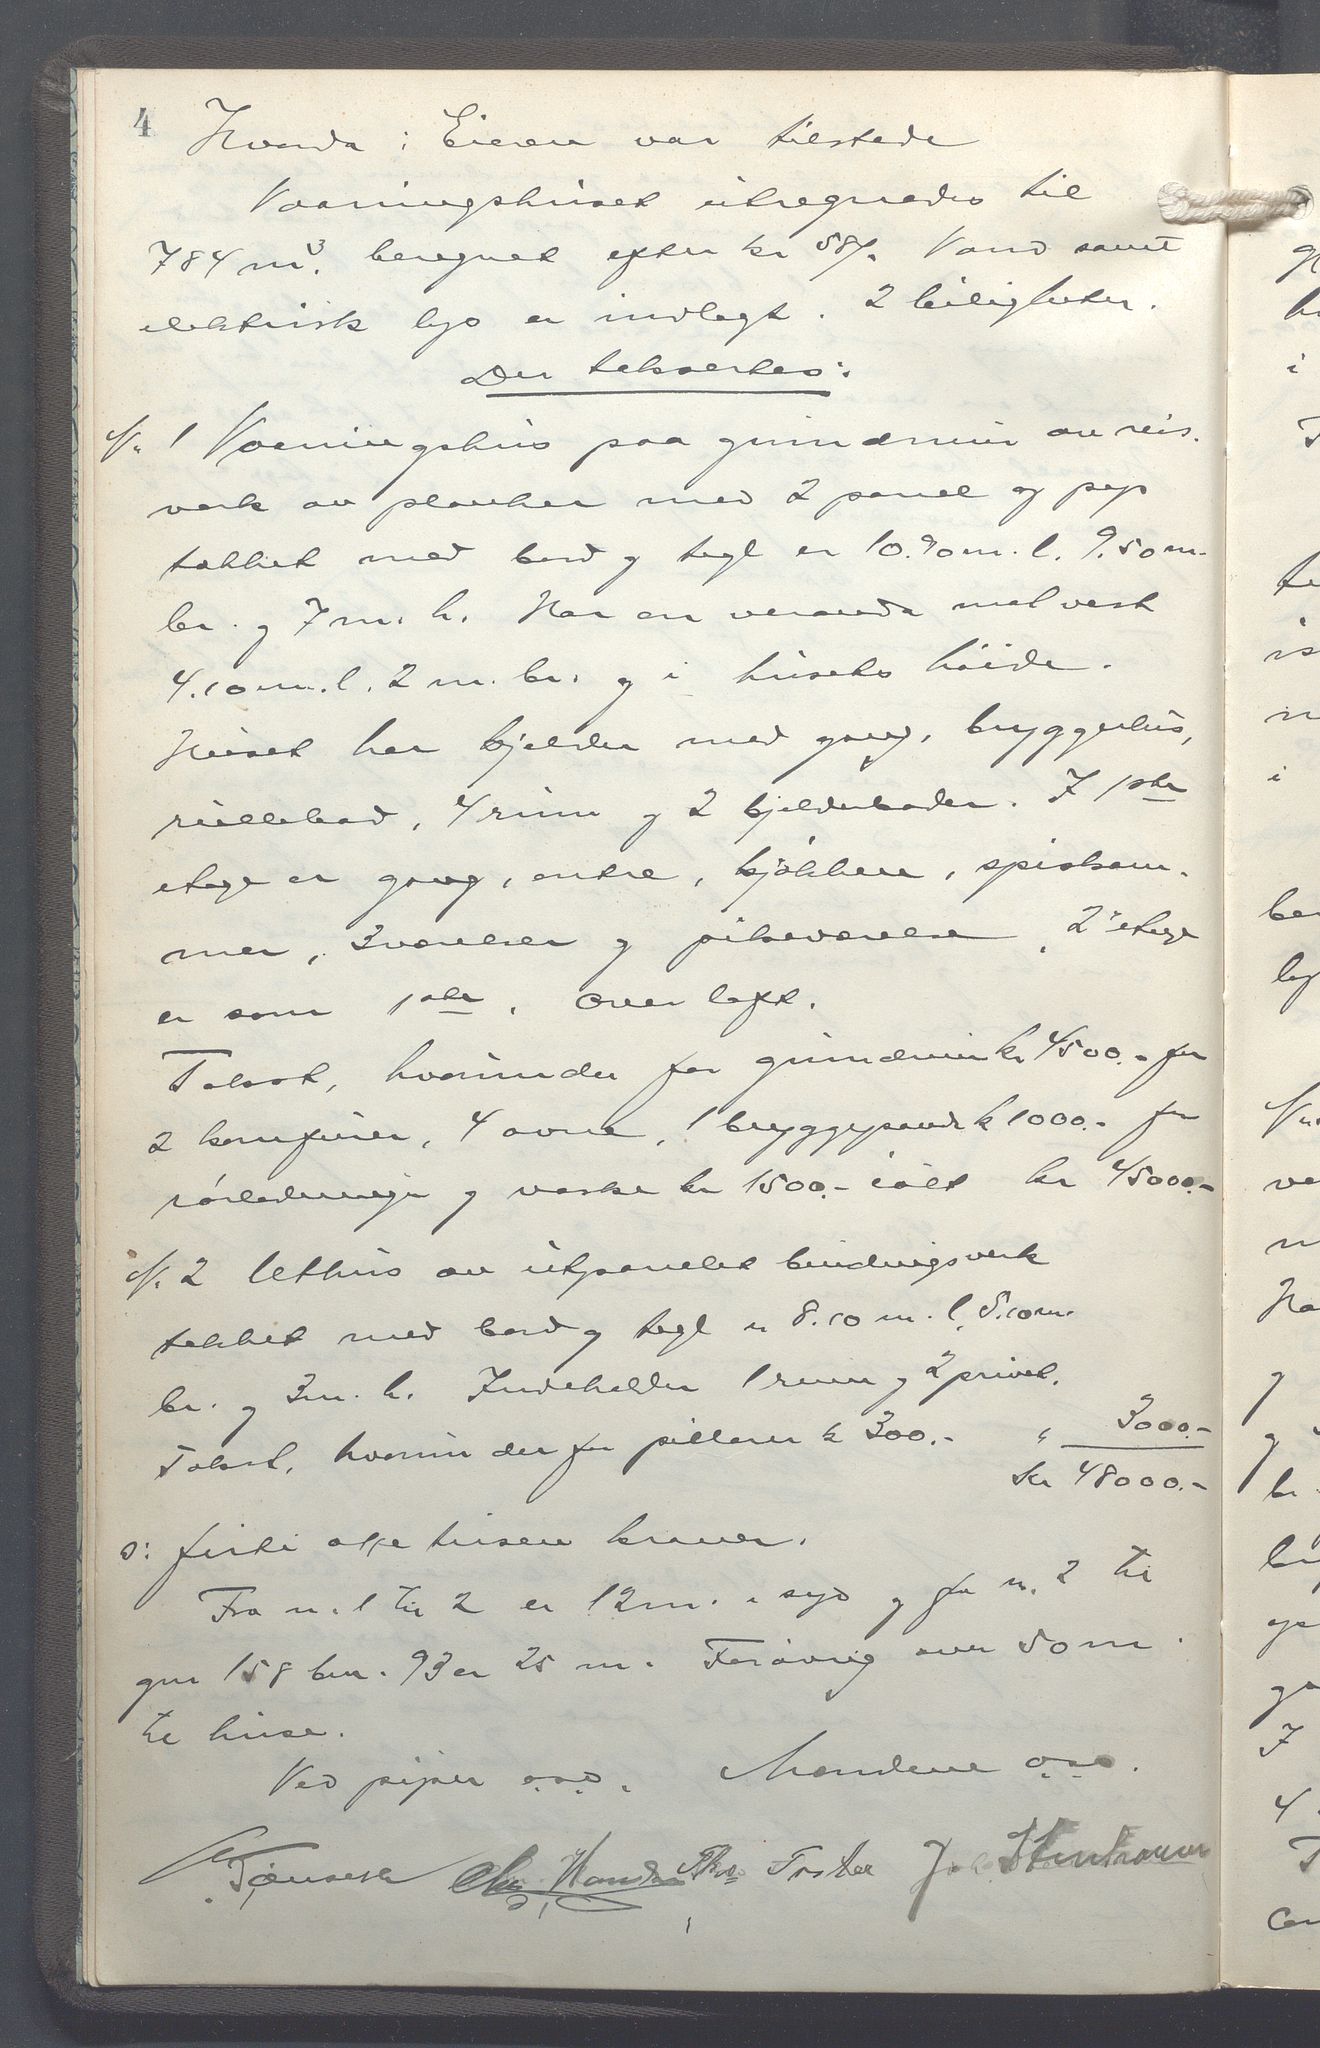 4
Hvorda: Eieren var tilstede
Vaaningshuset utregnedes til
784 m³. beregnet efter kr 58/. Vand samt
elektrisk lys er indlagt. 2 leiligheter.
Der takseertes:
N. 1 Vaaningshus paa grundmur av reis-
verk av planker med 2 panel og pap
tækket med bord og tegl er 10.90 m. l. 9.50 m.
br. og 7 m. h. Har en veranda mot vest
4.10 m. l. 2 m. br. og i husets høide.
Huset har kjelder med gang, bryggerhus,
rullebod, 4 rum og 2 kjelderboder. I 1ste
etage er gang, entre, kjøkken, spiskam-
mer, 3 værelser og pikeværelse, 2' etage
er som 1ste. Over loft.
Takst, hvorunder for grundmur kr 4500.- for
2 komfurer, 4 ovne, 1 bryggepande k 1000.- for
rørledninger og vaske kr 1500.- ialt kr 45000.-
N. 2 Uthus av utpanelet bindingsverk
tækket med bord og tegl er 8.10 m. l. 5.10 m.
br. og 3 m. h. Indeholder 1 rum og 2 privet.
Takst, hvorunder for pillarer k 300.- " 3000.-
Kr 48000.-
ɔ: firti otte tusen kroner.
Fra n. 1 til 2 er 12 m. i syd og fra n. 2 til
gnr 158 bnr. 93 er 25 m. Forøvrig over 50 m
til huse.
Ved piper o.s.v. Mændene o.s.v.
Tønnesen Chr. Joh. Stenhammer